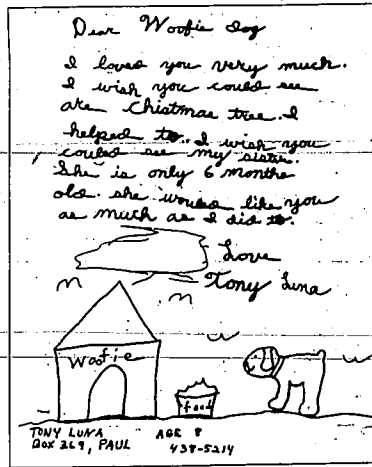 Dear Woofie dog
I loved you very much.
I wish you could see
are Chistmas tree. I
helped to. I wish you
could see my sister.
She is only 6 months
old. she would like you
as much as I did to.
Love
Tony Luna
Woofie
food
TONY LUNA AGE 8
BOX 269, PAUL 438-5214